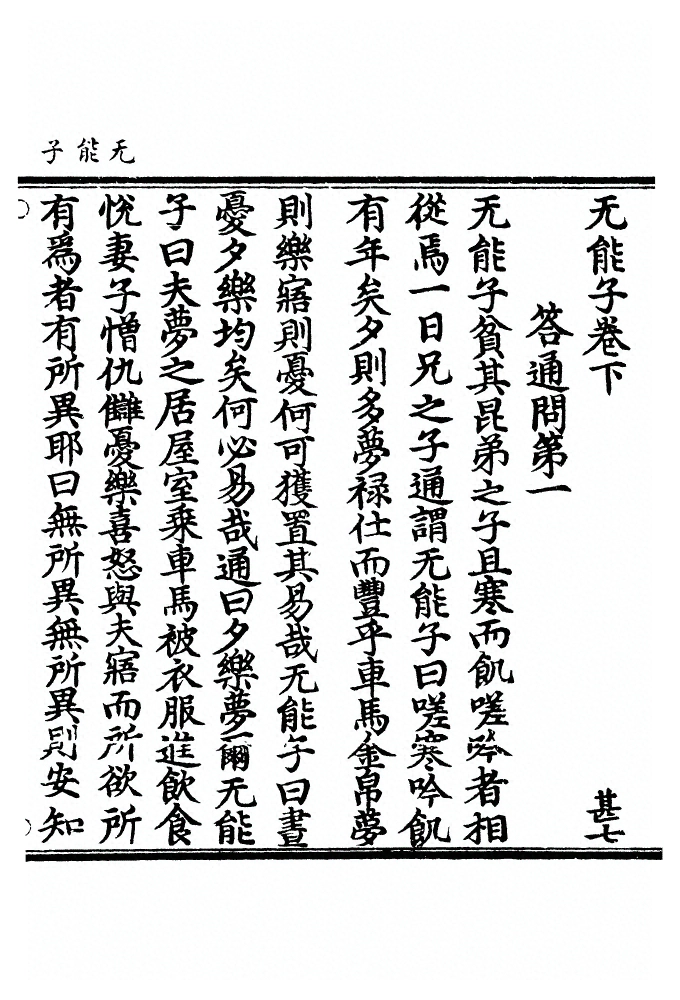 无能子
无能子卷下
甚七
答通問第一
无能子貧其昆弟之子且寒而飢嗟吟者相
從焉一日兄之子通謂无能子曰嗟寒吟飢
有年矣夕則多夢祿仕而豐乎車馬金帛夢
則樂寤則憂何可獲置其易哉无能子曰晝
憂夕樂均矣何必易哉通曰夕樂夢爾无能
子曰夫夢之居屋室乘車馬被衣服進飲食
悅妻子憎仇讎憂樂喜怒與夫寤而所欲所
有爲者有所異耶曰無所異無所異則安知